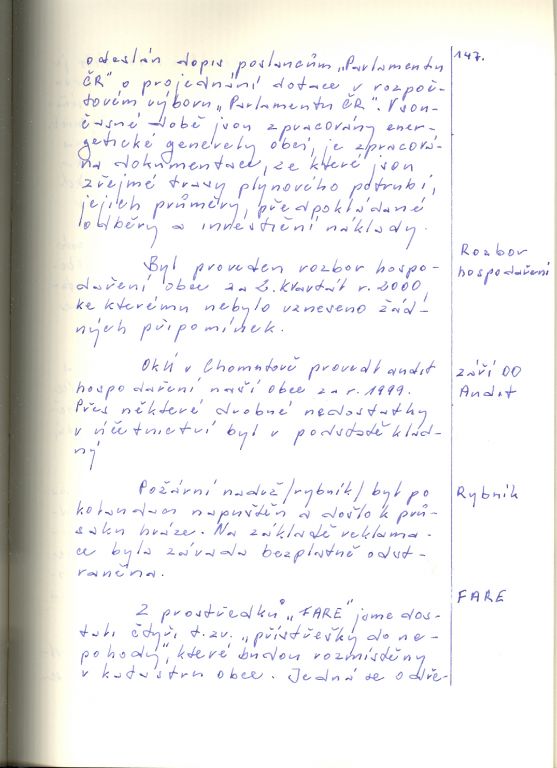 147.
odeslán dopis poslancům „Parlamentu
ČR" o projednání dotace v rozpoč-
tovém výboru „Parlamentu ČR". V sou-
časné době jsou zpracovány ener-
getické generely obcí, je zpracová-
na dokumentace, ze které jsou
zřejmé trasy plynového potrubí,
jejich průměry, předpokládané
odběry a investiční náklady.
Rozbor
hospodaření
Byl proveden rozbor hospo-
daření obce za 2. kvartál r. 2000,
ke kterému nebylo vzneseno žád-
ných připomínek.
září 00
Audit
OkÚ v Chomutově provedl audit
hospodaření naší obce za r. 1999.
Přes některé drobné nedostatky
v účetnictví byl v podstatě klad-
ný
Rybník
Požární nádrž /rybník/ byl po
kolaudaci napuštěn a došlo k prů-
saku hráze. Na základě reklama-
ce byla závada bezplatně odst-
raněna.
FARE
Z prostředků „FARE" jsme dos-
tali čtyři t.zv. „přístřešky do ne-
pohody", které budou rozmístěny
v katastru obce. Jedná se o dře-